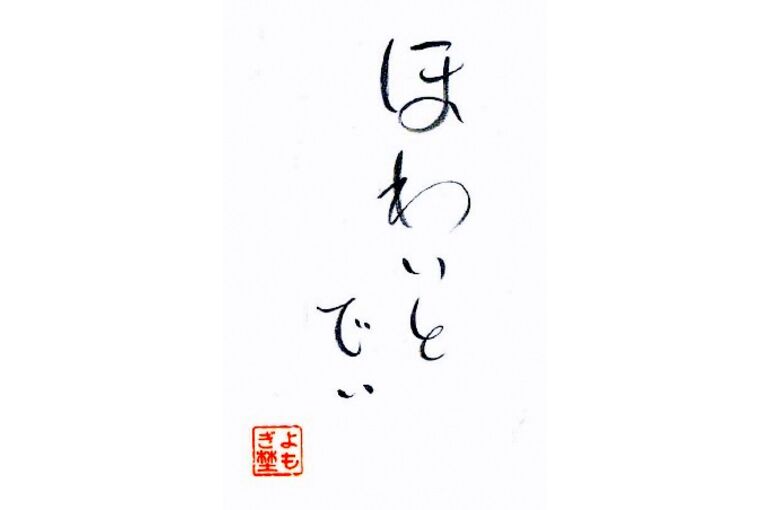 ほわいと
でぃ
よも
ぎ埜